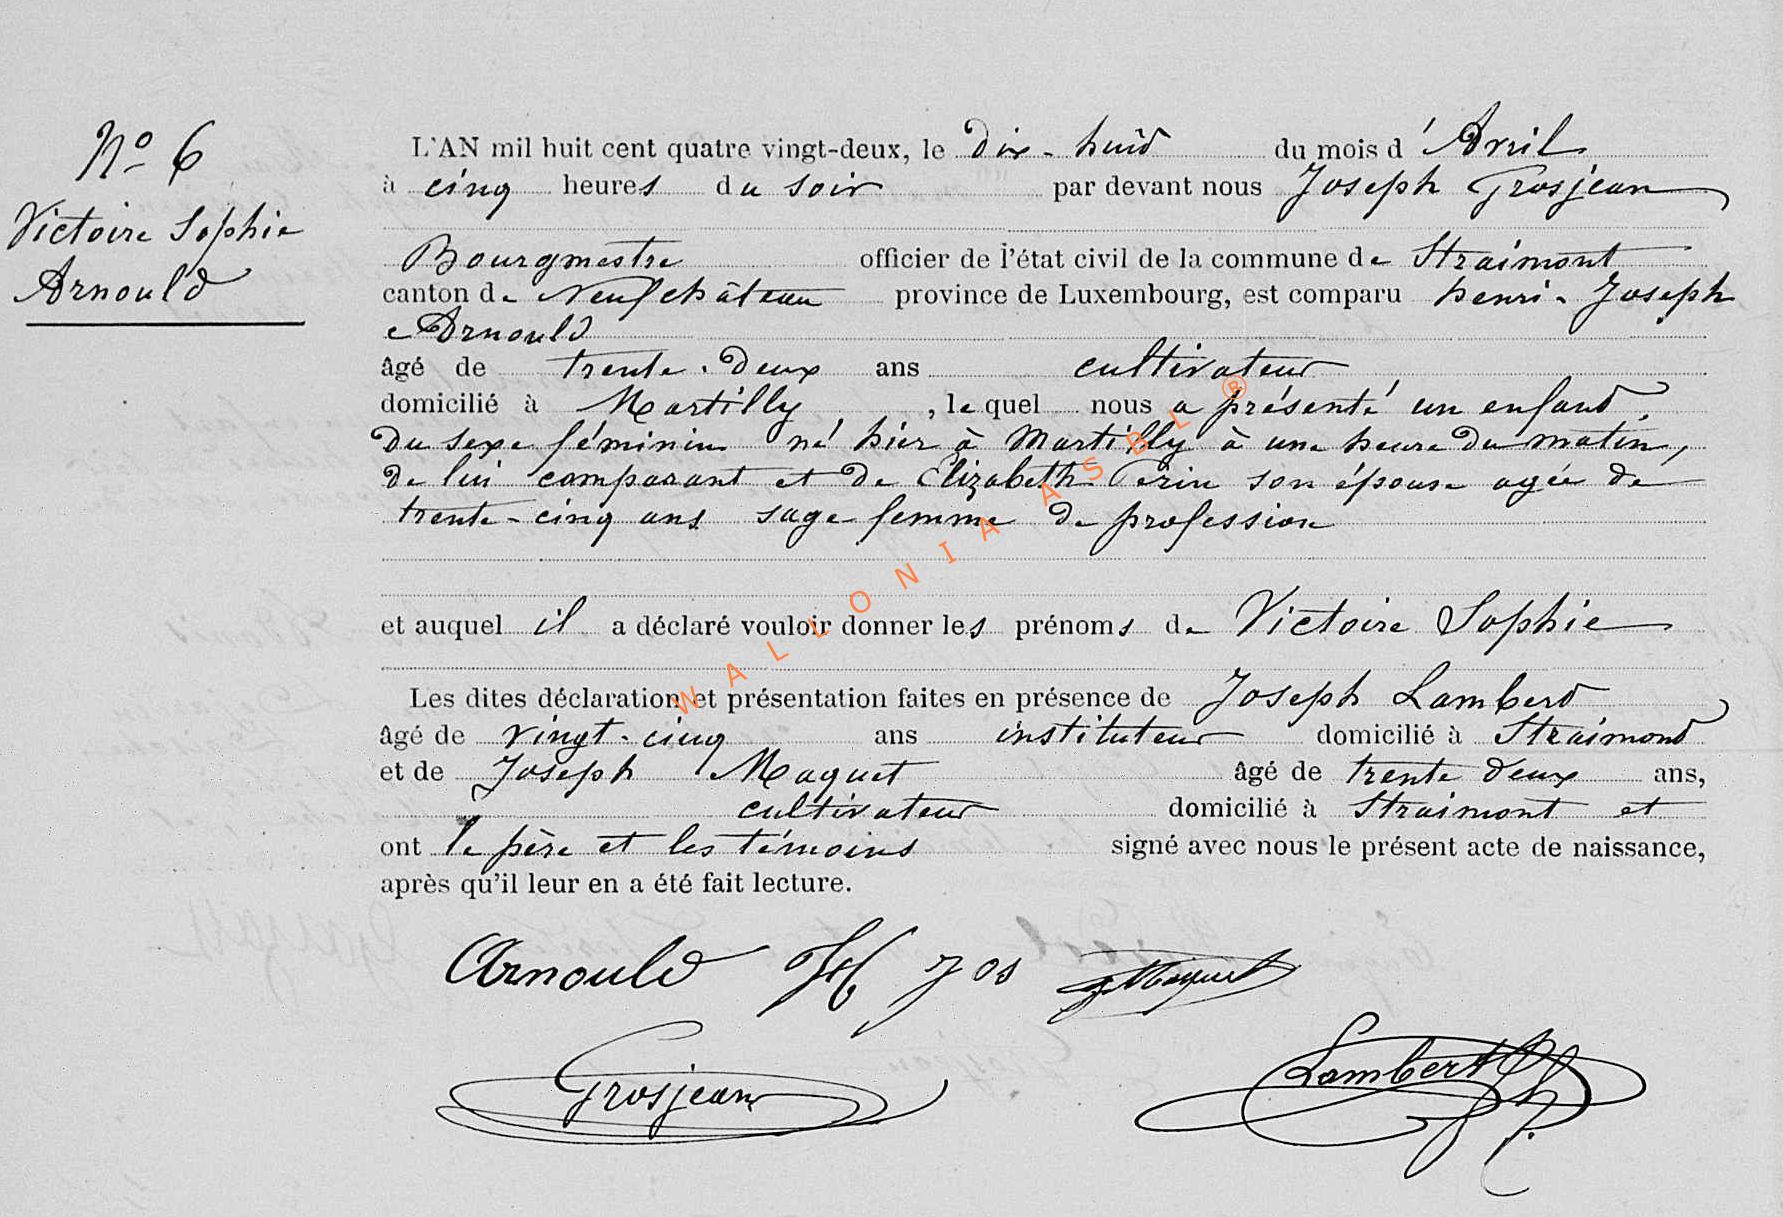 N° 6
Victoire Sophie
Arnould
L'AN mil huit cent quatre vingt-deux, le dix-huit du mois d'Avril
à cinq heures du soir par devant nous Joseph Grosjean
Bourgmestre officier de l'état civil de la commune de Straimont
canton de Neufchâteau province de Luxembourg, est comparu henri-Joseph
Arnould
âgé de trente-deux ans cultivateur
domicilié à Martilly, lequel nous a présenté un enfant,
du sexe féminin né hier à Martilly à une heure du matin,
de lui comparant et de Elizabeth Perin son épouse agée de
trente-cinq ans sage femme de profession
et auquel il a déclaré vouloir donner les prénoms de Victoire Sophie
Les dites déclaration et présentation faites en présence de Joseph Lambert
âgé de vingt-cinq ans instituteur domicilié à Straimont
et de Joseph Maquet âgé de trente deux ans,
cultivateur domicilié à Straimont et
ont le père et les témoins signé avec nous le présent acte de naissance,
après qu'il leur en a été fait lecture.
Arnould H Jos J Maquet
Grosjean Lambert
WALLONIA ASBL ®